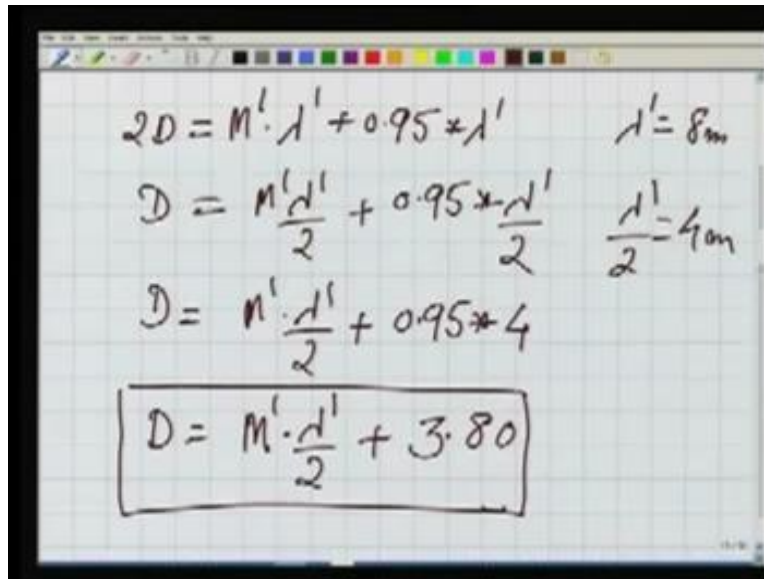 2D = M'·λ' + 0.95*λ' λ' = 8m
D = M'λ'/2 + 0.95*λ'/2 λ'/2 = 4m
D = M'·λ'/2 + 0.95*4
D = M'·λ'/2 + 3.80